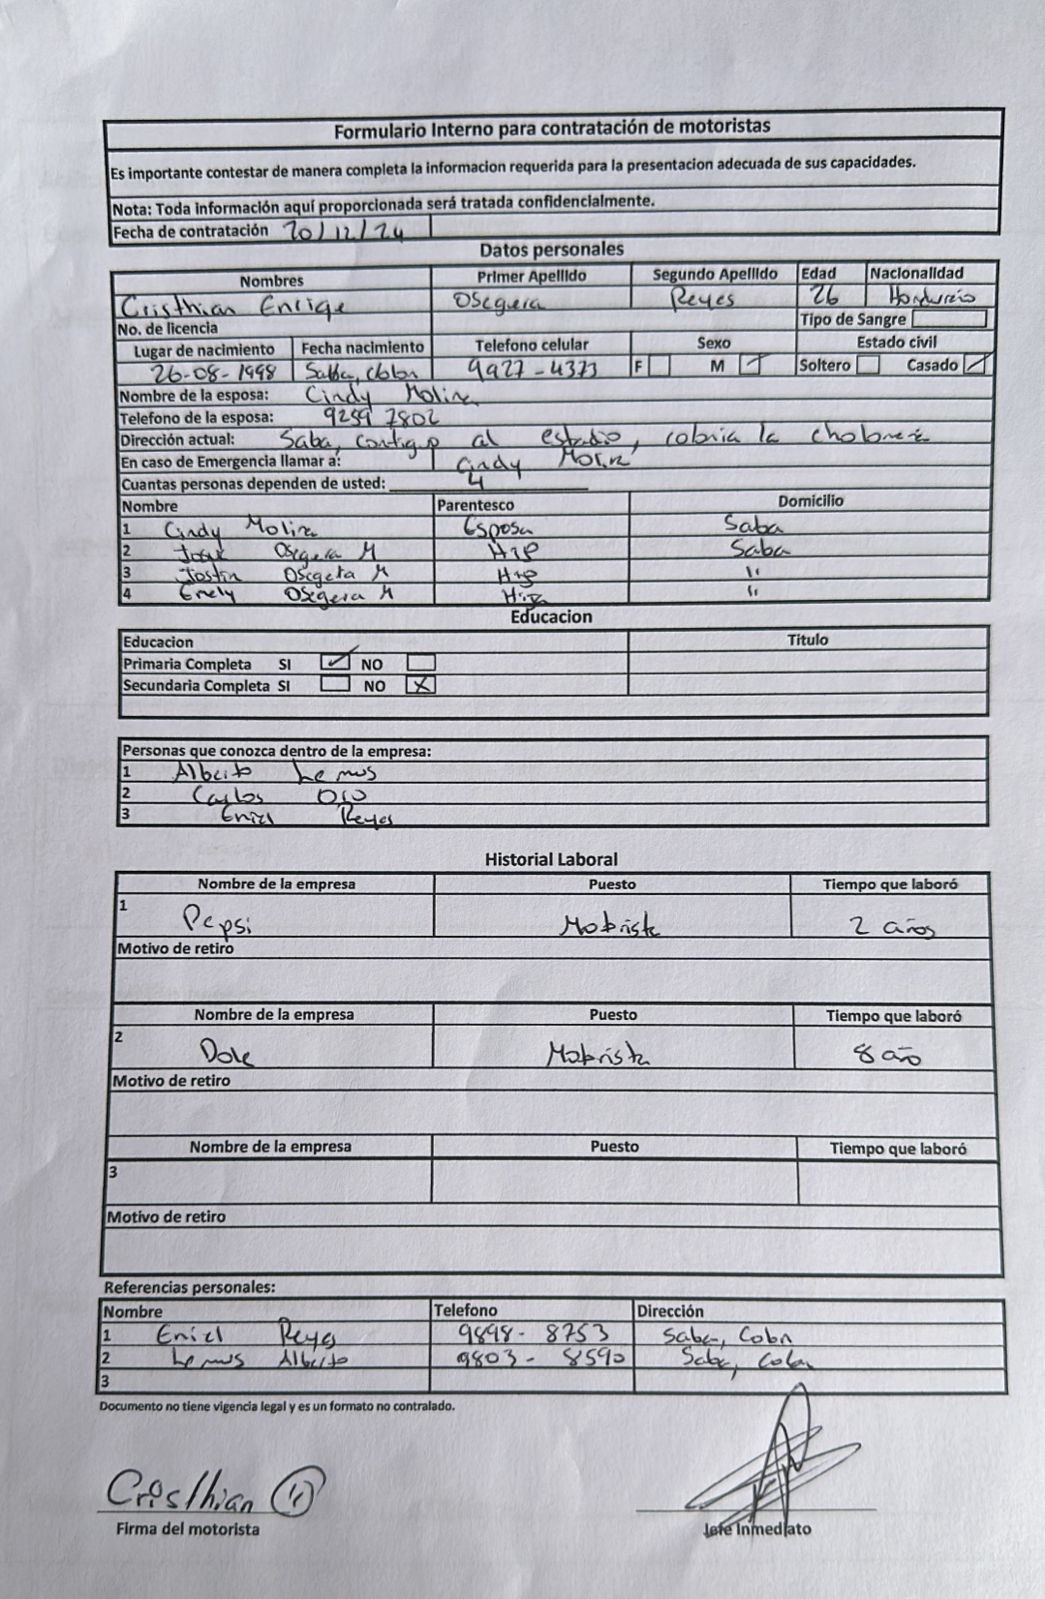 Formulario Interno para contratación de motoristas
Es importante contestar de manera completa la informacion requerida para la presentacion adecuada de sus capacidades.
Nota: Toda información aquí proporcionada será tratada confidencialmente.
Fecha de contratación 20/12/24
Datos personales
Nombres Primer Apellido Segundo Apellido Edad Nacionalidad
Cristhian Enrique Osegera Reyes 26
No. de licencia Tipo de Sangre
Lugar de nacimiento Fecha nacimiento Telefono celular Sexo Estado civil
26-08-1998 Saba, Colon 9927-4373 F M Soltero Casado
Nombre de la esposa: Cindy Molina
Telefono de la esposa: 9259 7802
Dirección actual: Saba, contiguo al estadio,
En caso de Emergencia llamar a: Cindy Molina
Cuantas personas dependen de usted: 4
Nombre Parentesco Domicilio
1 Cindy Molina Esposa Saba
2 Osegera M Hijo Saba
3 Jostin Osegera M Hijo "
4 Emely Osegera M Hija "
Educacion
Educacion Titulo
Primaria Completa SI NO
Secundaria Completa SI NO X
Personas que conozca dentro de la empresa:
1 Alberto Lemus
2 Carlos
3 Eniel Reyes
Historial Laboral
Nombre de la empresa Puesto Tiempo que laboró
1 Pepsi Motorista 2 años
Motivo de retiro
Nombre de la empresa Puesto Tiempo que laboró
2 Dole Motorista 8 año
Motivo de retiro
Nombre de la empresa Puesto Tiempo que laboró
3
Motivo de retiro
Referencias personales:
Nombre Telefono Dirección
1 Eniel Reyes 9898-8753 Saba, Colon
2 Lemus Alberto 9803-8590 Saba, Colon
3
Documento no tiene vigencia legal y es un formato no contralado.
Cristhian
Firma del motorista Jefe Inmediato